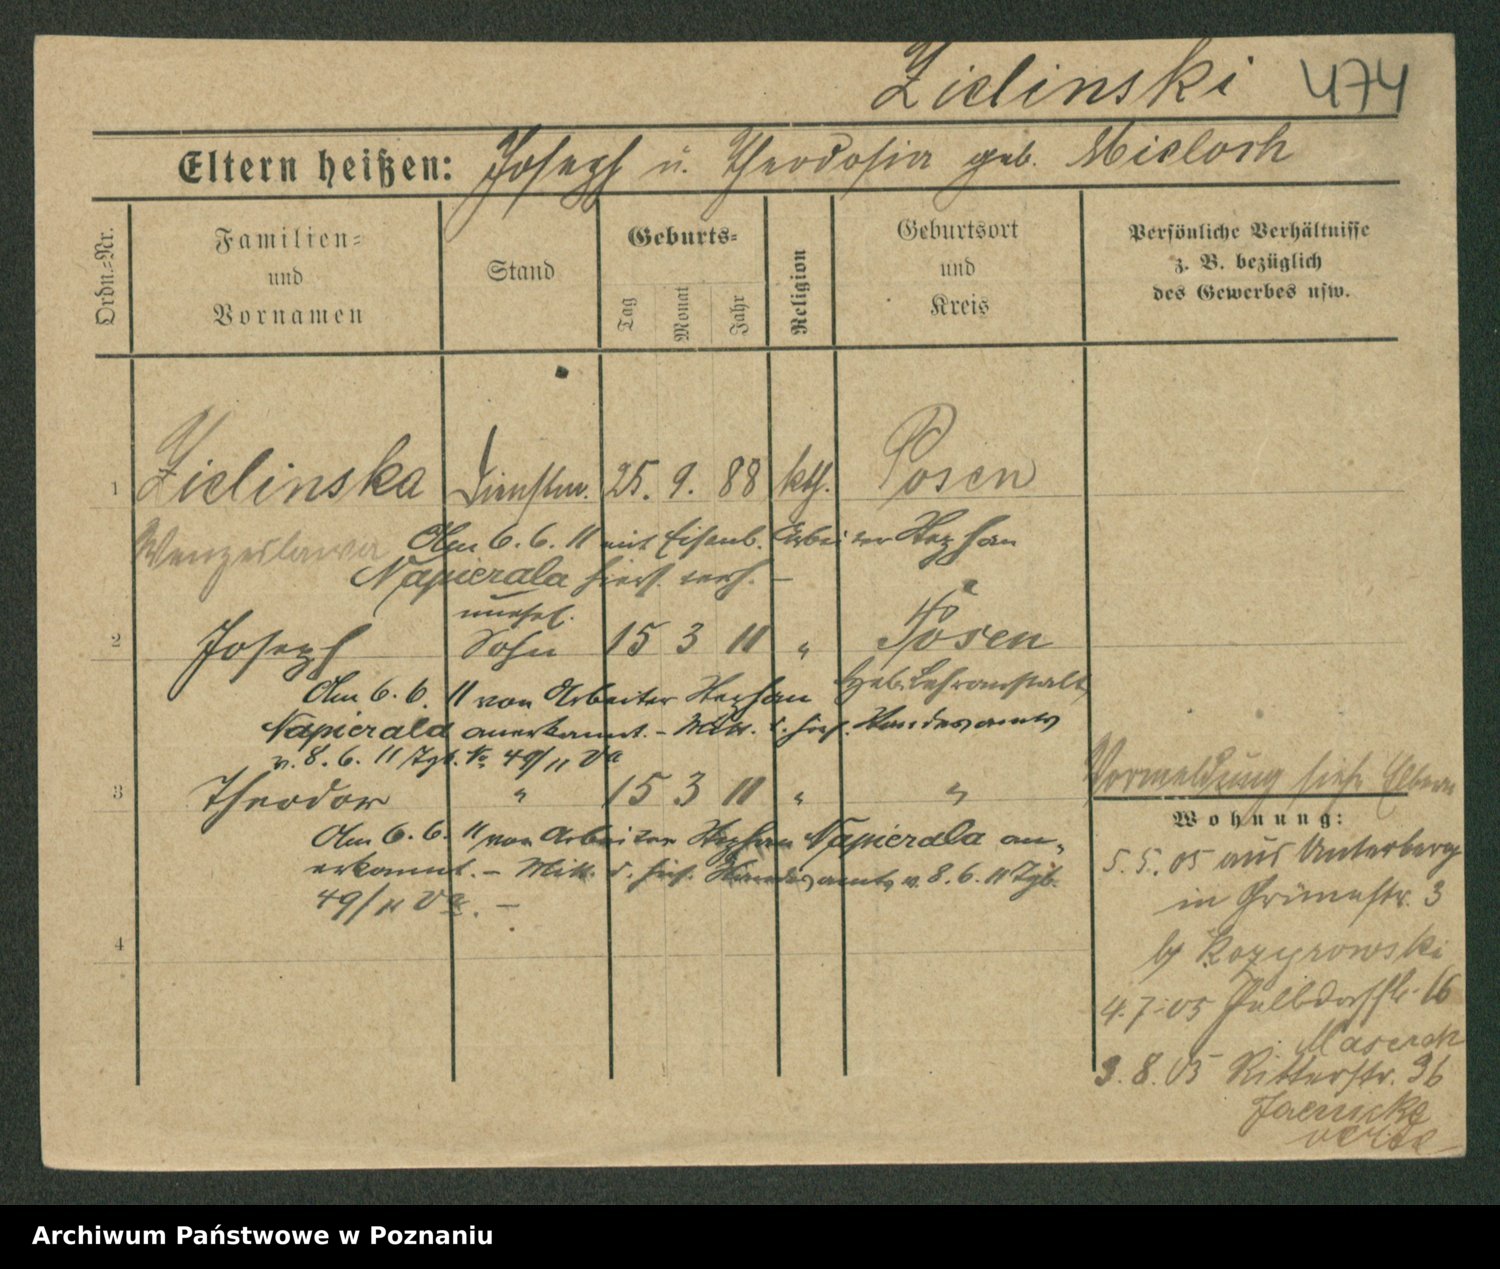 Zielinski 474
Eltern heißen: Joseph u. Theodosia geb. Mieloch
Ordn.-Nr.
Familien-
und
Vornamen
Stand
Geburts-
Tag
Monat
Jahr
Religion
Geburtsort
und
Kreis
Persönliche Verhältnisse
z. B. bezüglich
des Gewerbes usw.
1 Zielinska Dienstm. 25. 9. 88 kth. Posen
Wenzeslawa Am 6. 6. 11 mit Eisenb. Arbeiter Stephan
Napierala hiers. verh. —
unehel.
2 Joseph Sohn 15 3 11 " Posen
Am 6. 6. 11 von Arbeiter Stephan Heb. Lehranstalt
Napierala anerkannt. - Mitt. d. hies. Standesamts
v. 8. 6. 11 Tgb. № 49/11 Va
3 Theodor " 15 3 11 " "
Am 6. 6. 11 von Arbeiter Stephan Napierala an-
erkannt. - Mitt. d. hies. Standesamts v. 8. 6. 11 Tgb.
49/11 Va. —
4
Vormeldung siehe Eltern
Wohnung:
5. 5. 05 aus Unterberg
in Grünestr. 3
b/
4. 7. 05 16
3. 8. 05 Ritterstr. 36
Jaenicke
Archiwum Państwowe w Poznaniu